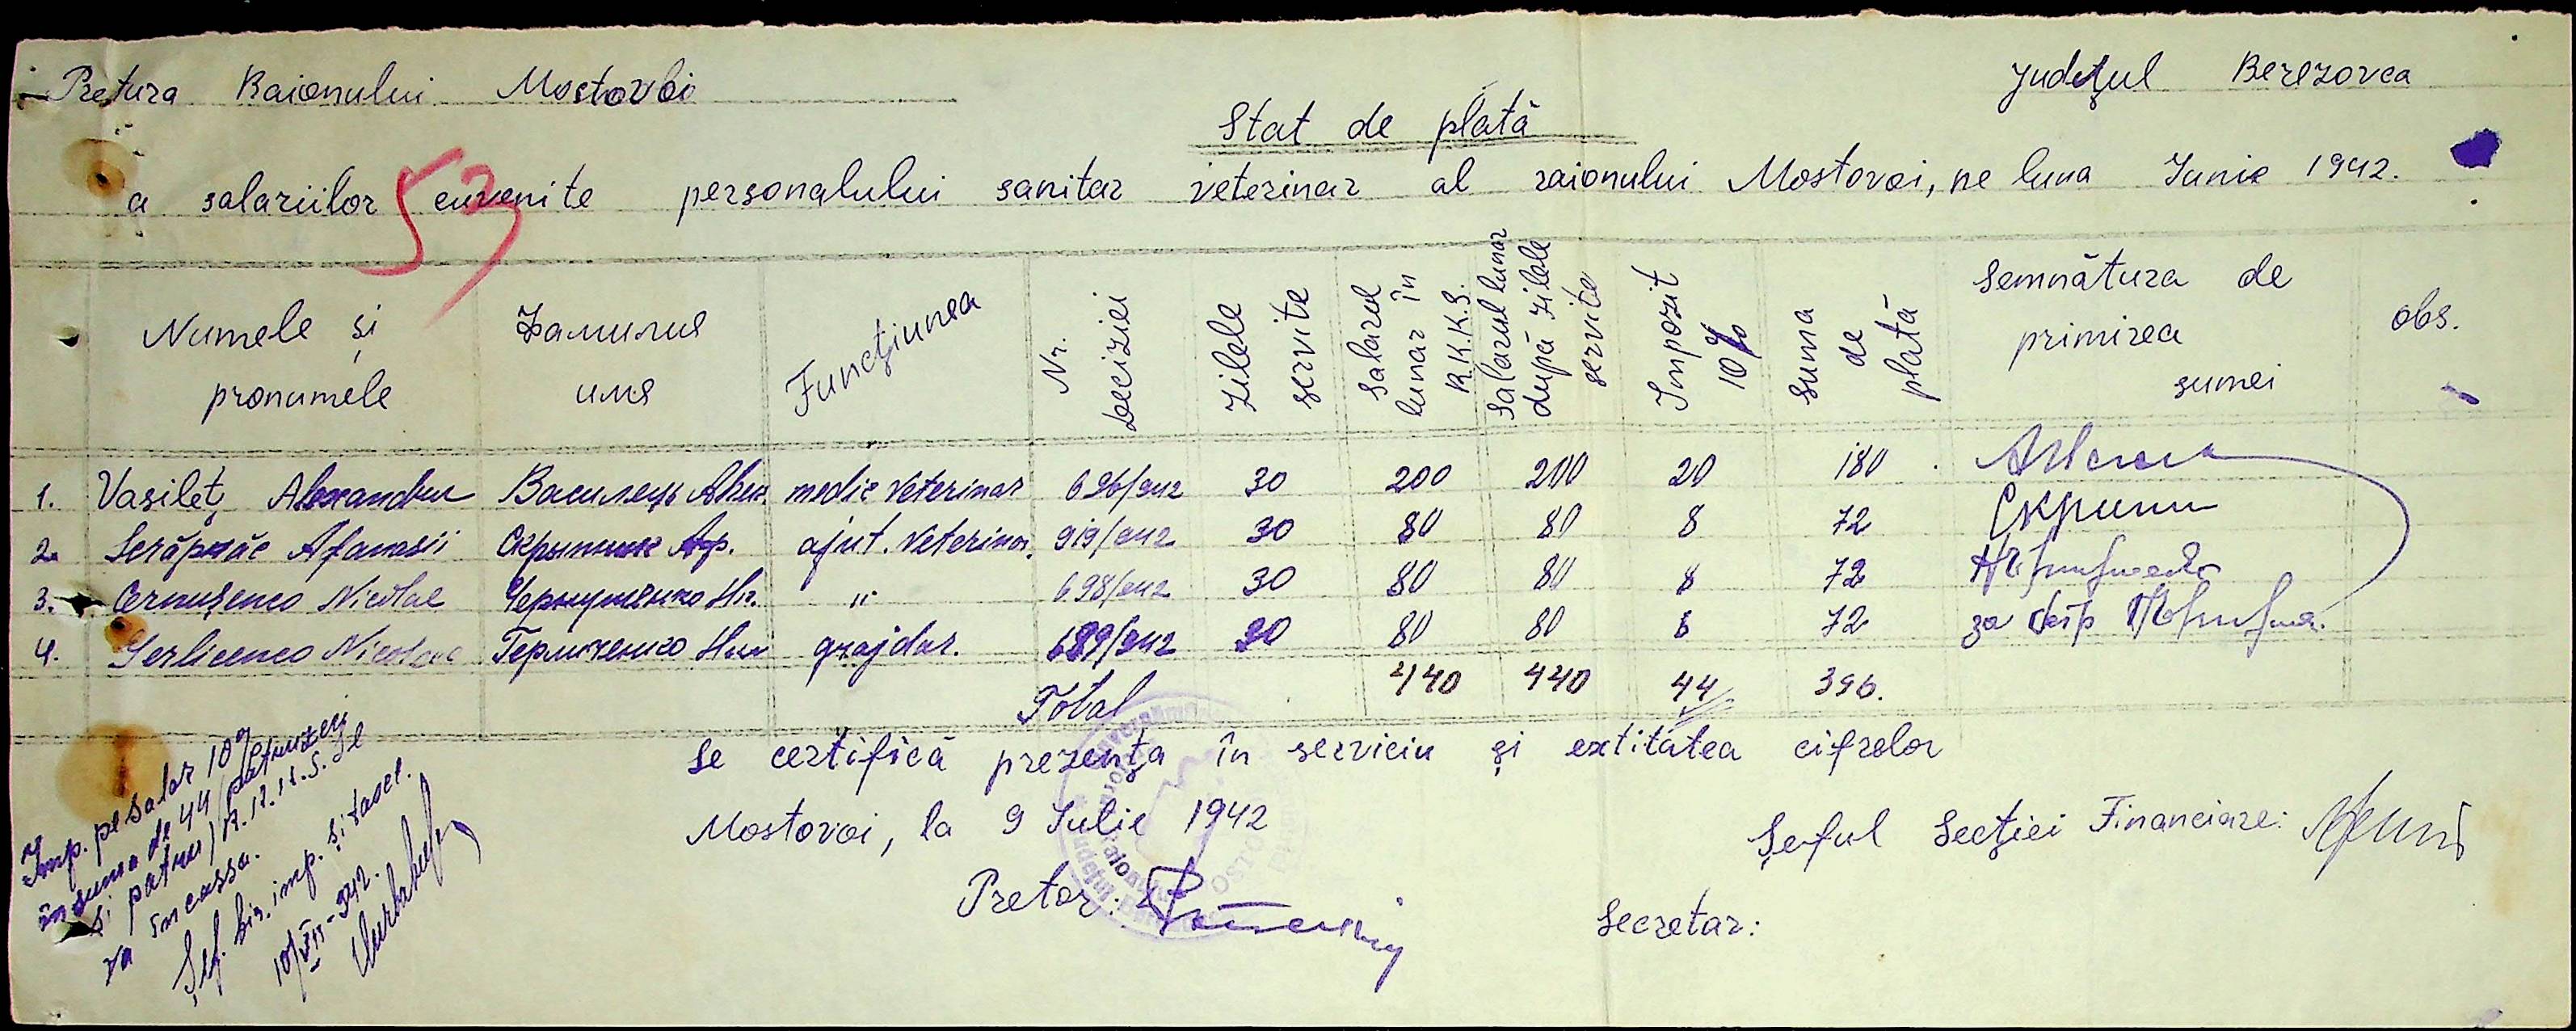 Pretura Raionului Mostovoi
Județul Berezovca
Stat de plată
53
a salariilor cuvenite personalului sanitar veterinar al raionului Mostovoi, pe luna Iunie 1942.
Numele și pronumele
Фамилия имя
Funcțiunea
Nr. deciziei
Zilele servite
Salarul lunar în R.K.K.S.
Salarul lunar după zilele servite
Impozit 10%
Suma de plată
Semnătura de primirea sumei
obs.
1. Vasileț Alexandru Василець Алек. medic veterinar 696/942 30 200 200 20 180
2. Afanasii ajut. veterinar. 919/942 30 80 80 8 72 Скрипн
3. Cernușenco Nicolae Чернушенко Ник. " 698/942 30 80 80 8 72
4. Gerlicenco Nicolae Герличенко Ник grajdar. 689/942 30 80 80 8 72 за
Total 440 440 44 396.
Se certifică prezența în serviciu și extitatea cifrelor
Mostovoi, la 9 Iulie 1942
Șeful Secției Financiare:
Pretor:
Secretar:
Imp. pe salar 10%
în suma de 44 /patruzeci
și patru/ R.K.K.S. se
va încassa.
Șef. bir. imp. și taxel.
10/VII-942.